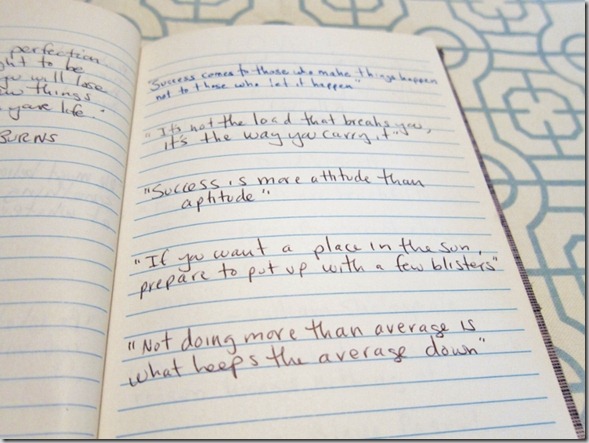 perfection
ght to be
you will lose
ow things
life."
BURNS
"Success comes to those who make things happen
not to those who let it happen"
"It's not the load that breaks you,
it's the way you carry it"
"Success is more attitude than
aptitude"
"If you want a place in the sun,
prepare to put up with a few blisters"
"Not doing more than average is
what keeps the average down"